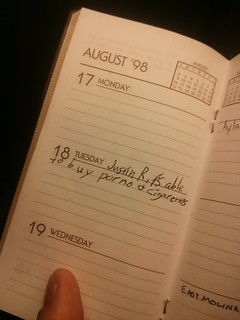 AUGUST '98
17 MONDAY
18 TUESDAY Justin R. is able
to buy porno & cigarettes
19 WEDNESDAY
AUGUST
EAST MOLINE